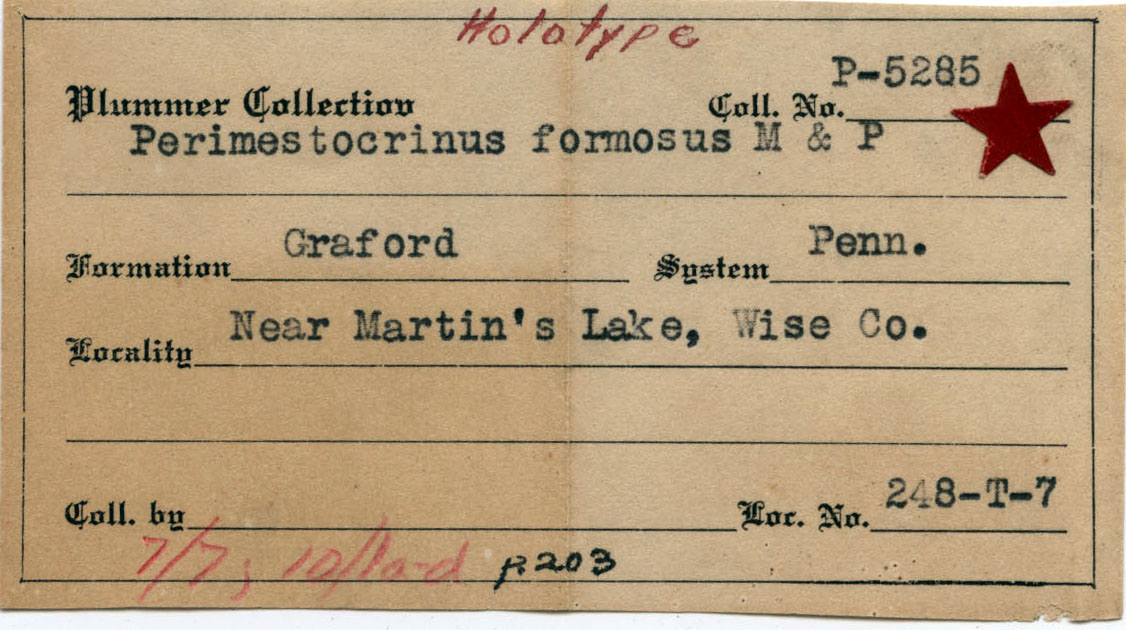 Holotype
P-5285
Plummer Collection Coll. No.
Perimestocrinus formosus M & P
Formation Graford System Penn.
Locality Near Martin's Lake, Wise Co.
Coll. by Loc. No. 248-T-7
7/7, 10/1a-d p.203